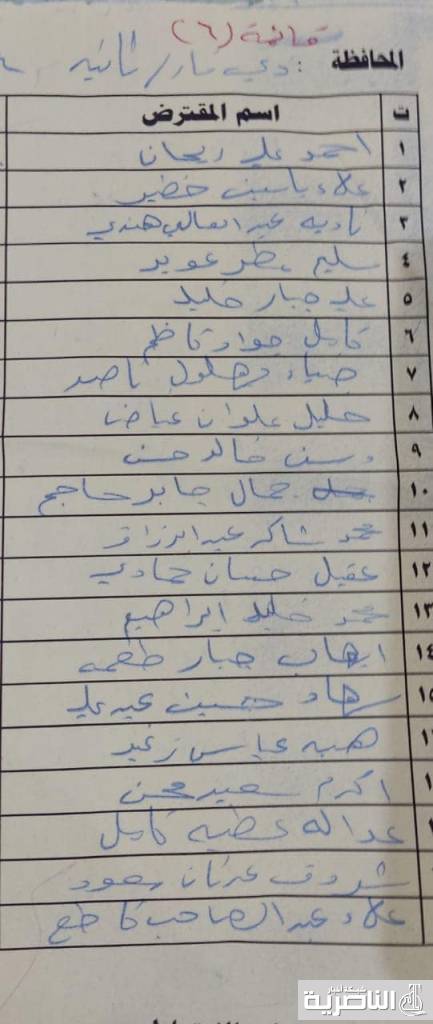 قائمة (٦)
المحافظة : ذي قار / ثانية
ت اسم المقترض
١ احمد علي ريحان
٢ علاء ياسين خضير
٣ نادية عبد العالي هندي
٤ سليم مطر عويد
٥ علي جبار خليل
٦ كامل جواد كاظم
٧ ضياء بهلول ناصر
٨ خليل علوان عباس
٩ وسن خالد حسن
١٠ جمال جابر حاجم
١١ محمد شاكر عبد الرزاق
١٢ عقيل حسان حمادي
١٣ محمد خليل ابراهيم
١٤ ايهاب جبار طعمه
سهاد حسين عبد علي
هبه عباس زغير
اكرم سعيد محسن
عدالة عطيه كامل
شروق عدنان
علاء عبد الصاحب كاطع
شبكة أخبار
الناصرية